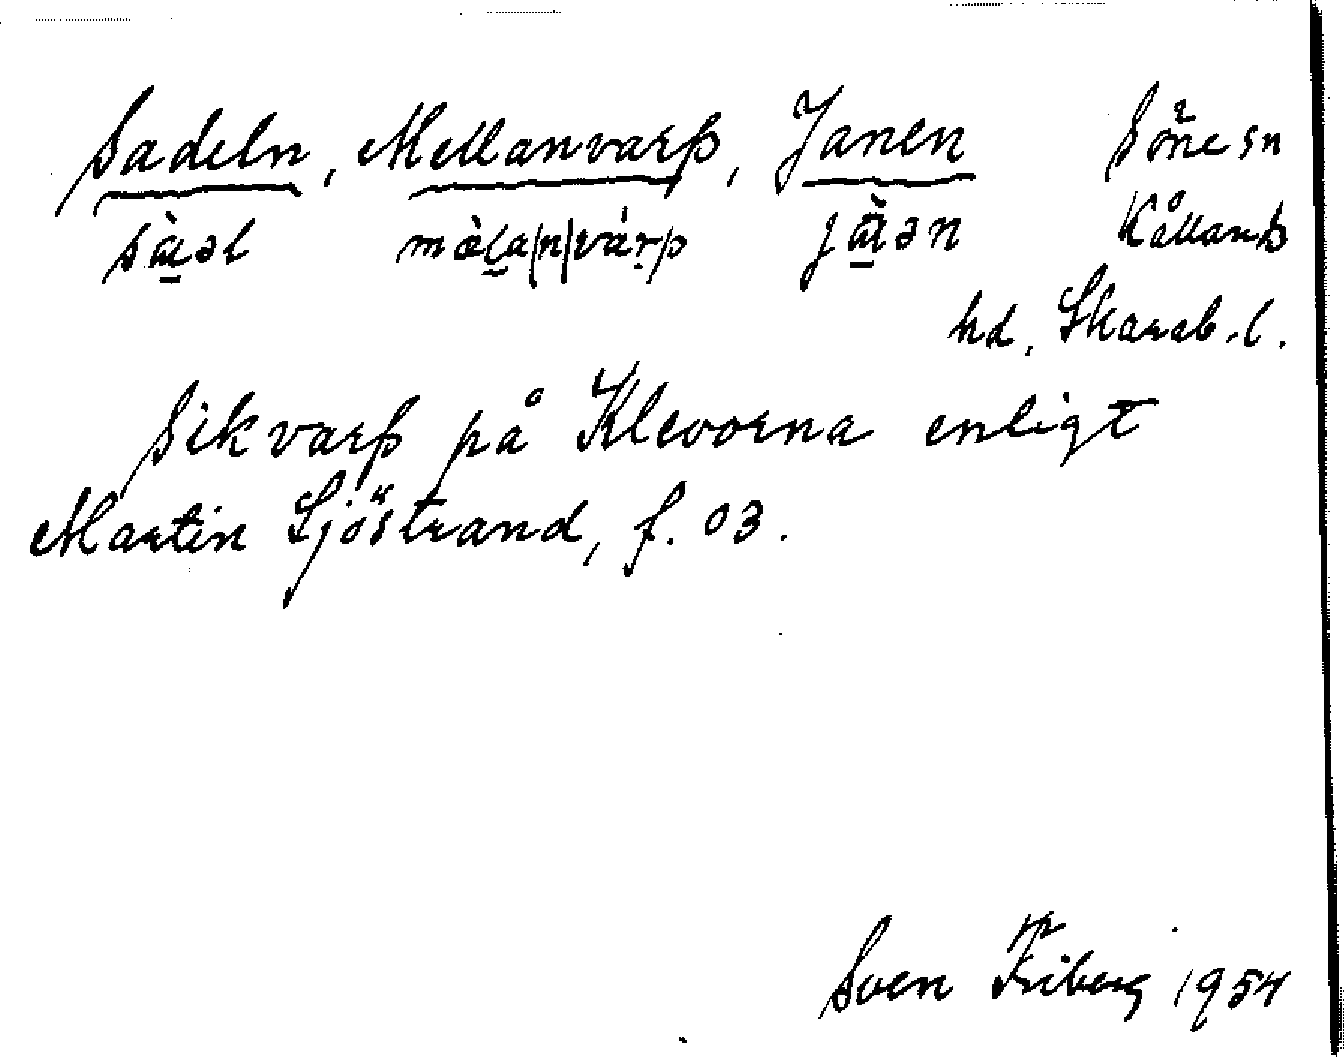 Sadeln, Mellanvarp, Janen Söne sn
Kållands
hd, Skarab. l.
Sikvarp på Klevorna enligt
Martin Sjöstrand, f. 03.
Sven Friberg 1954